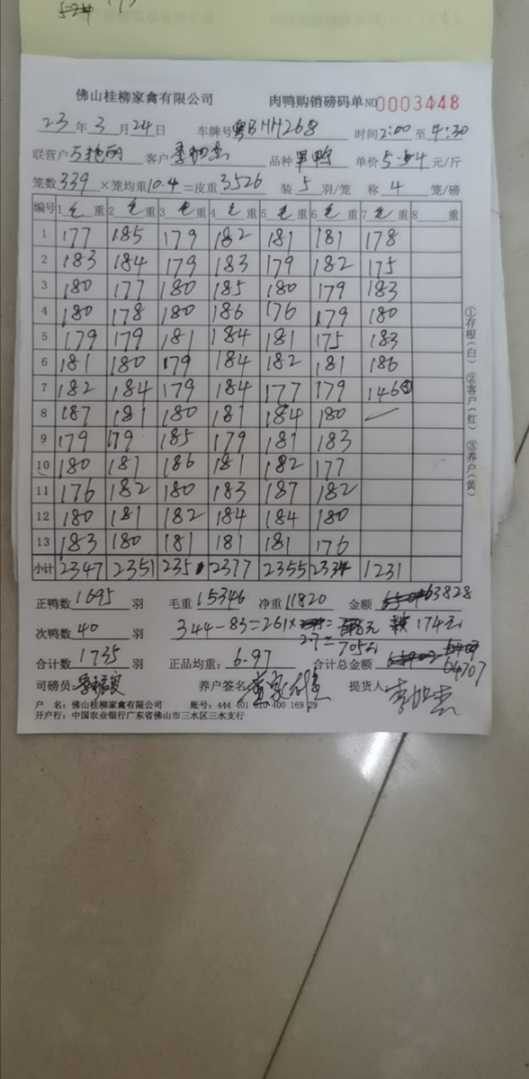 佛山桂柳家禽有限公司 肉鸭购销磅码单 NO0003448
23年3月24日 车牌号粤BHH268 时间2:00至4:30
联营户 客户 品种 单价5.4元/斤
笼数339×笼均重10.4=皮重3526 装5羽/笼 称4笼/磅
编号 1毛重 2毛重 3毛重 4毛重 5毛重 6毛重 7毛重 8重
1 177 185 179 182 181 181 178
2 183 184 179 183 179 182 175
3 180 177 180 185 180 179 183
4 180 178 180 186 176 179 180
5 179 179 181 184 181 175 183
6 181 180 179 184 182 181 186
7 182 184 179 184 177 179 146③
8 187 181 180 181 184 180
9 179 179 185 179 181 183
10 180 181 186 181 182 177
11 176 182 180 183 187 182
12 180 181 182 184 184 180
13 183 180 181 181 181 176
小计 2347 2351 2351 2377 2355 2334 1231
①存根(白) ②客户(红) ③养户(黄)
正鸭数1695羽 毛重15346 净重11820 金额63828
次鸭数40羽 344-83=261× 174元
2.7=705元
合计数1735羽 正品均重:6.97 合计总金额64707
司磅员: 养户签名: 提货人:
户 名:佛山桂柳家禽有限公司 账号:444 601 010 400 169 29
开户行:中国农业银行广东省佛山市三水区三水支行